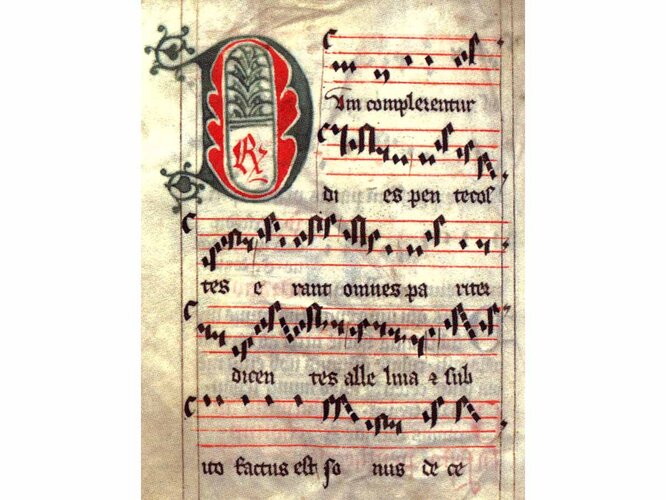 R
DVm complerentur
di es pen tecos
tes e rant omnes pa riter
dicen tes alle luia ⁊ sub
ito factus est so nus de ce